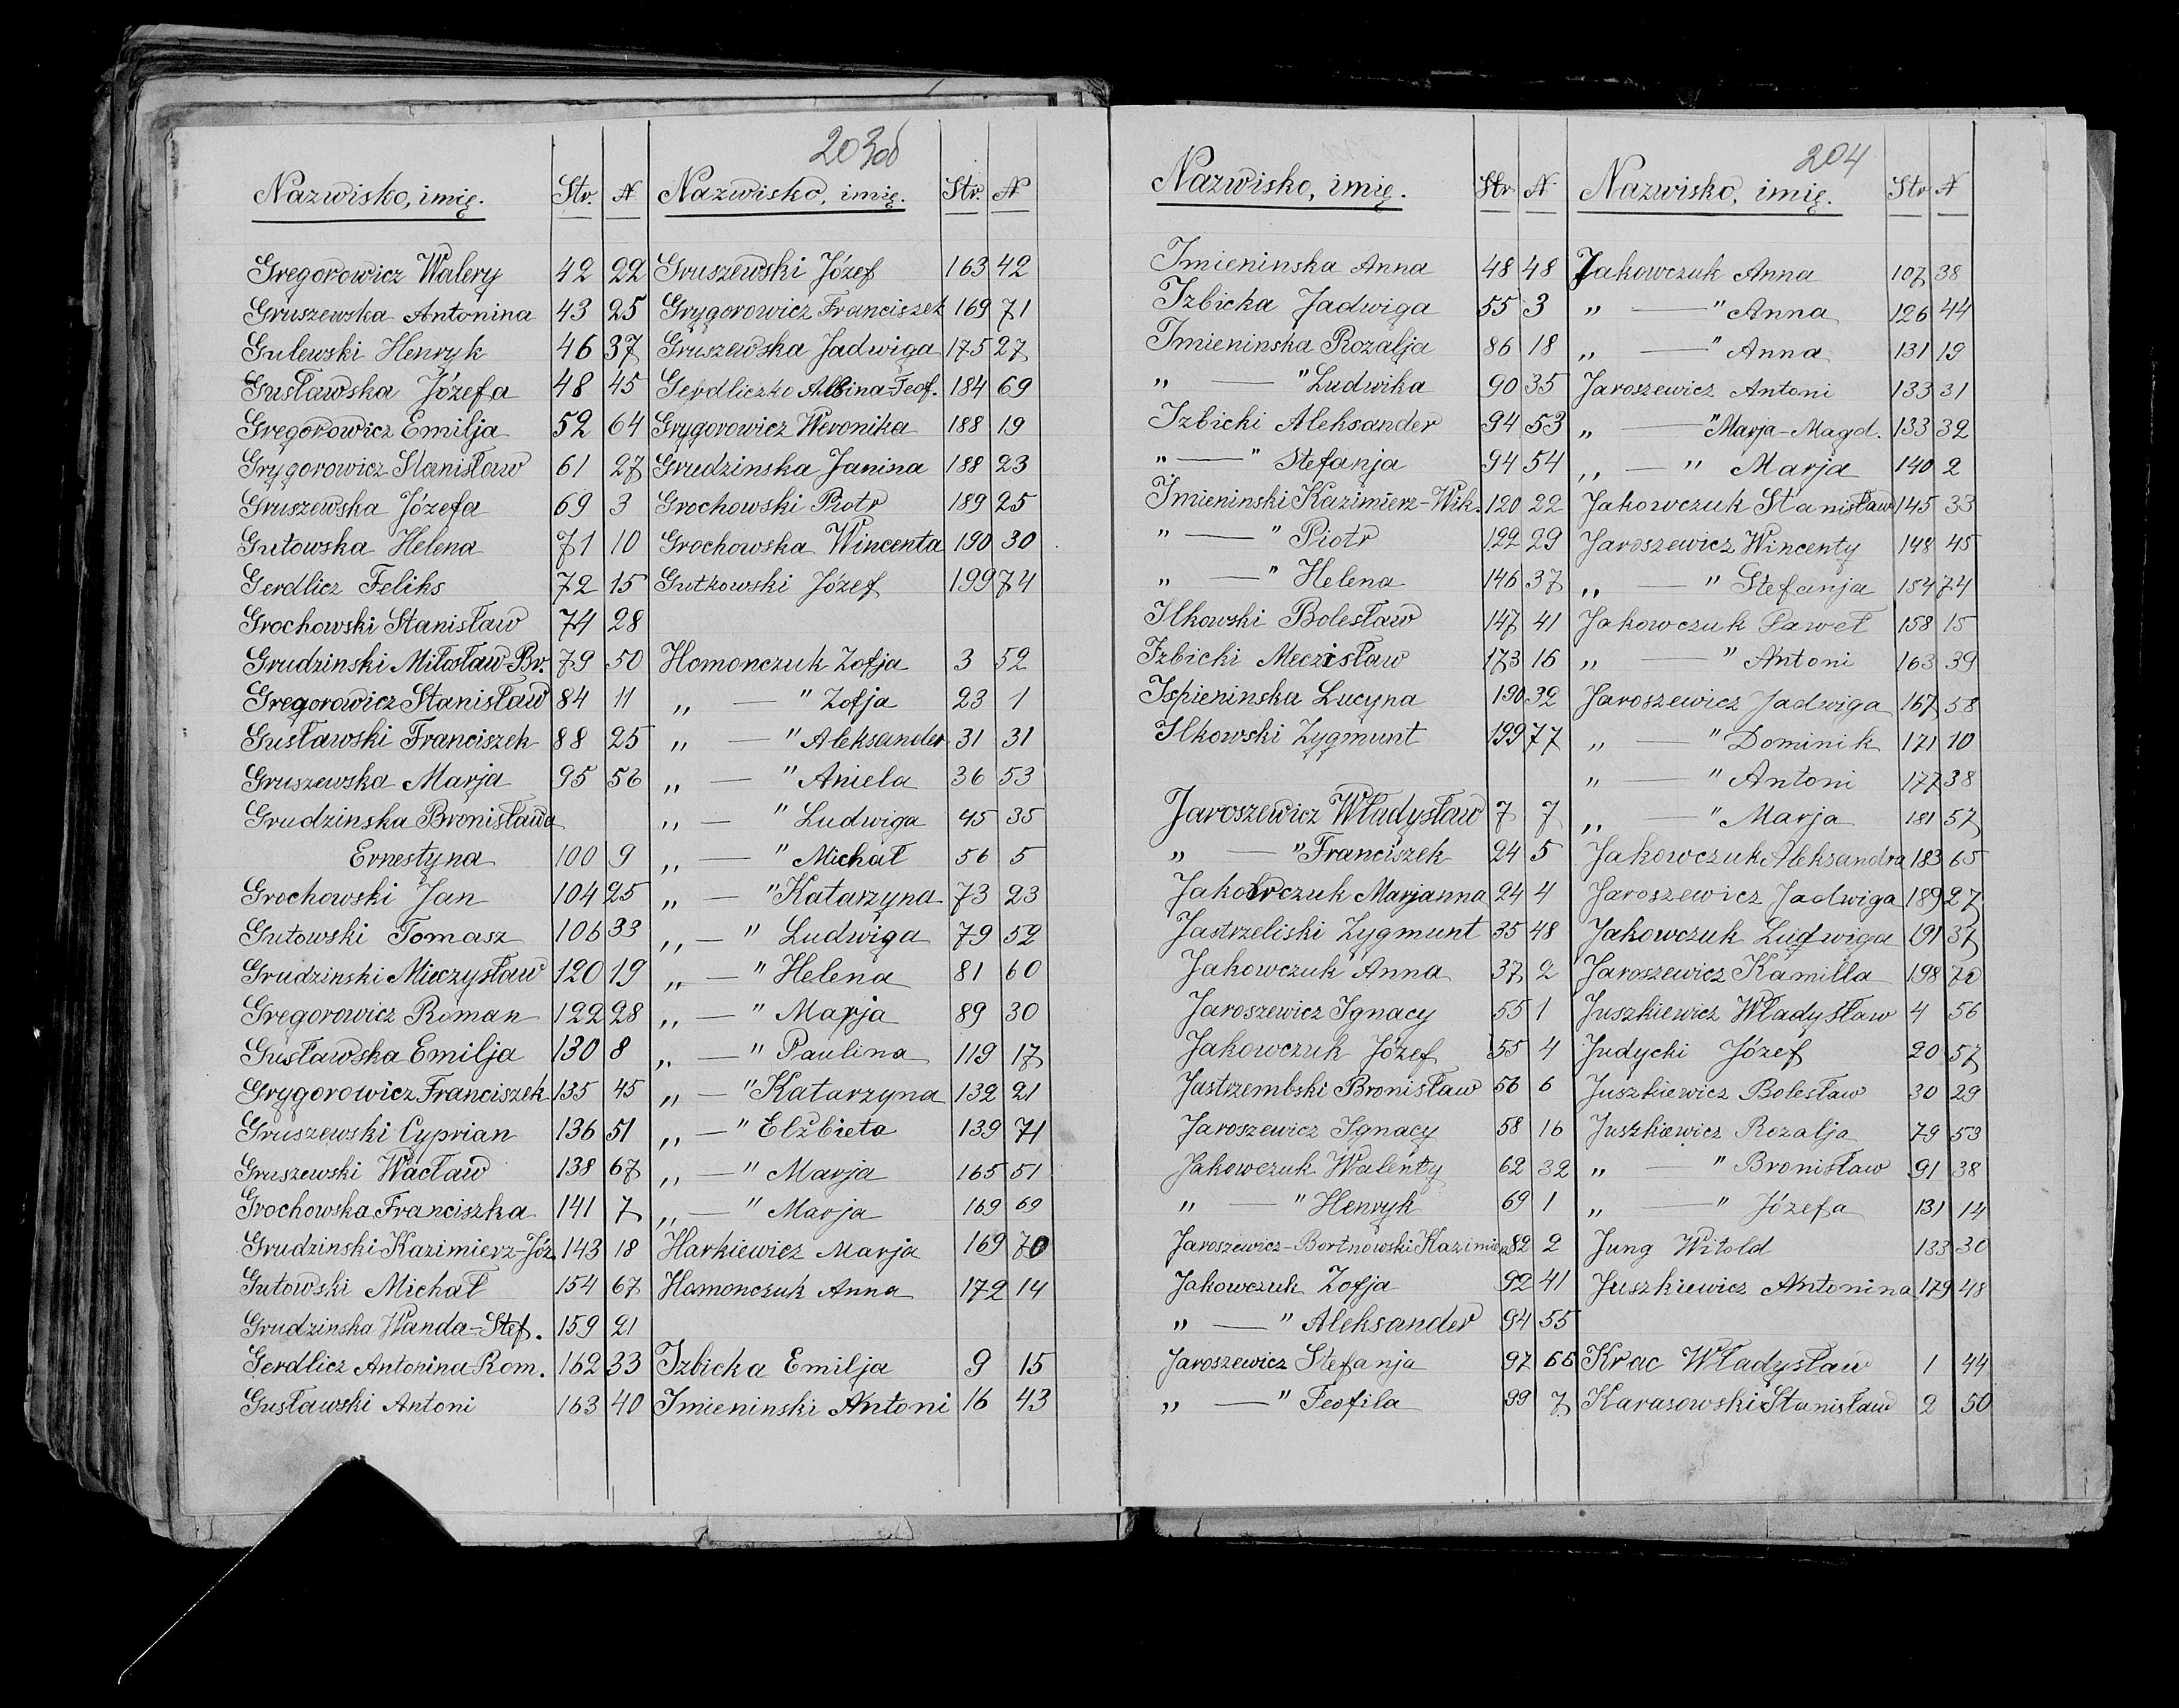 203 od
Nazwisko, imię. Str. N
Gregorowicz Walery 42 22
Gruszewska Antonina 43 25
Gulewski Henryk 46 37
Gusławska Józefa 48 45
Gregorowicz Emilja 52 64
Grygorowicz Stanisław 61 27
Gruszewska Józefa 69 3
Gutowska Helena 71 10
Gerdlicz Feliks 72 15
Grochowski Stanisław 74 28
Grudzinski Miłosław-Br. 79 50
Gregorowicz Stanisław 84 11
Gusławski Franciszek 88 25
Gruszewska Marja 95 56
Grudzinska Bronisława
Ernestyna 100 9
Grochowski Jan 104 25
Gutowski Tomasz 106 33
Grudzinski Mieczysław 120 19
Gregorowicz Roman 122 28
Gusławska Emilja 130 8
Grygorowicz Franciszek 135 45
Gruszewski Cyprian 136 51
Gruszewski Wacław 138 67
Grochowska Franciszka 141 7
Grudzinski Kazimierz-Józ. 143 18
Gutowski Michał 154 67
Grudzinska Wanda-Stef. 159 21
Gerdlicz Antonina-Rom. 162 33
Gusławski Antoni 163 40
Nazwisko, imię. Str. N
Gruszewski Józef 163 42
Grygorowicz Franciszek 169 71
Gruszewska Jadwiga 175 27
Gerdliczko Albina-Teof. 184 69
Grygorowicz Weronika 188 19
Grudzinska Janina 188 23
Grochowski Piotr 189 25
Grochowska Wincenta 190 30
Gutkowski Józef 199 74
Homonczuk Zofja 3 52
„ — " Zofja 23 1
„ — " Aleksander 31 31
„ — " Aniela 36 53
„ — " Ludwiga 45 35
„ — " Michał 56 5
„ — " Katarzyna 73 23
„ — " Ludwiga 79 52
„ — " Helena 81 60
„ — " Marja 89 30
„ — " Paulina 119 17
„ — " Katarzyna 132 21
„ — " Elżbieta 139 71
„ — " Marja 165 51
„ — " Marja 169 69
Harkiewicz Marja 169 70
Homonczuk Anna 172 14
Izbicka Emilja 9 15
Imieninski Antoni 16 43
204
Nazwisko, imię. Str N
Imieninska Anna 48 48
Izbicka Jadwiga 55 3
Imieninska Rozalja 86 18
„ — " Ludwika 90 35
Izbicki Aleksander 94 53
„ — " Stefanja 94 54
Imieninski Kazimierz-Wik. 120 22
„ — " Piotr 122 29
„ — " Helena 146 37
Ilkowski Bolesław 147 41
Izbicki Meczisław 173 16
Ispieninska Lucyna 190 32
Ilkowski Zygmunt 199 77
Jaroszewicz Władysław 7 7
„ — " Franciszek 24 5
Jakowczuk Marjanna 24 4
Jastrzeliski Zygmunt 35 48
Jakowczuk Anna 37 2
Jaroszewicz Ignacy 55 1
Jakowczuk Józef 55 4
Jastrzembski Bronisław 56 6
Jaroszewicz Ignacy 58 16
Jakowczuk Walenty 62 32
„ — " Henryk 69 1
Jaroszewicz-Bortnowski Kazimierz 82 2
Jakowczuk Zofja 92 41
„ — " Aleksander 94 55
Jaroszewicz Stefanja 97 66
„ — " Teofila 99 7
Nazwisko, imię. Str N
Jakowczuk Anna 107 38
„ — " Anna 126 44
„ — " Anna 131 19
Jaroszewicz Antoni 133 31
„ — " Marja-Magd. 133 32
„ — " Marja 140 2
Jakowczuk Stanisław 145 33
Jaroszewicz Wincenty 148 45
„ — " Stefanja 154 74
Jakowczuk Paweł 158 15
„ — " Antoni 163 39
Jaroszewicz Jadwiga 167 58
„ — " Dominik 171 10
„ — " Antoni 177 38
„ — " Marja 181 57
Jakowczuk Aleksandra 183 65
Jaroszewicz Jadwiga 189 27
Jakowczuk Ludwiga 191 37
Jaroszewicz Kamilla 198 70
Juszkiewicz Władysław 4 56
Judycki Józef 20 57
Juszkiewicz Bolesław 30 29
Juszkiewicz Rozalja 79 53
„ — " Bronisław 91 38
„ — " Józefa 131 14
Jung Witold 133 30
Juszkiewicz Antonina 179 48
Krac Władysław 1 44
Karasowski Stanisław 2 50